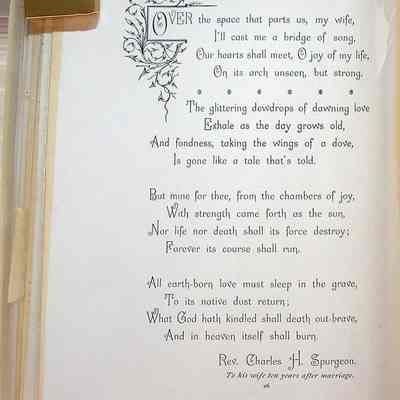 OVER the space that parts us, my wife,
I'll cast me a bridge of song,
Our hearts shall meet, O joy of my life,
On its arch unseen, but strong.
The glittering dewdrops of dawning love
Exhale as the day grows old,
And fondness, taking the wings of a dove,
Is gone like a tale that's told.
But mine for thee, from the chambers of joy,
With strength came forth as the sun,
Nor life nor death shall its force destroy;
Forever its course shall run.
All earth-born love must sleep in the grave,
To its native dust return;
What God hath kindled shall death out-brave,
And in heaven itself shall burn.
Rev. Charles H. Spurgeon.
To his wife ten years after marriage.